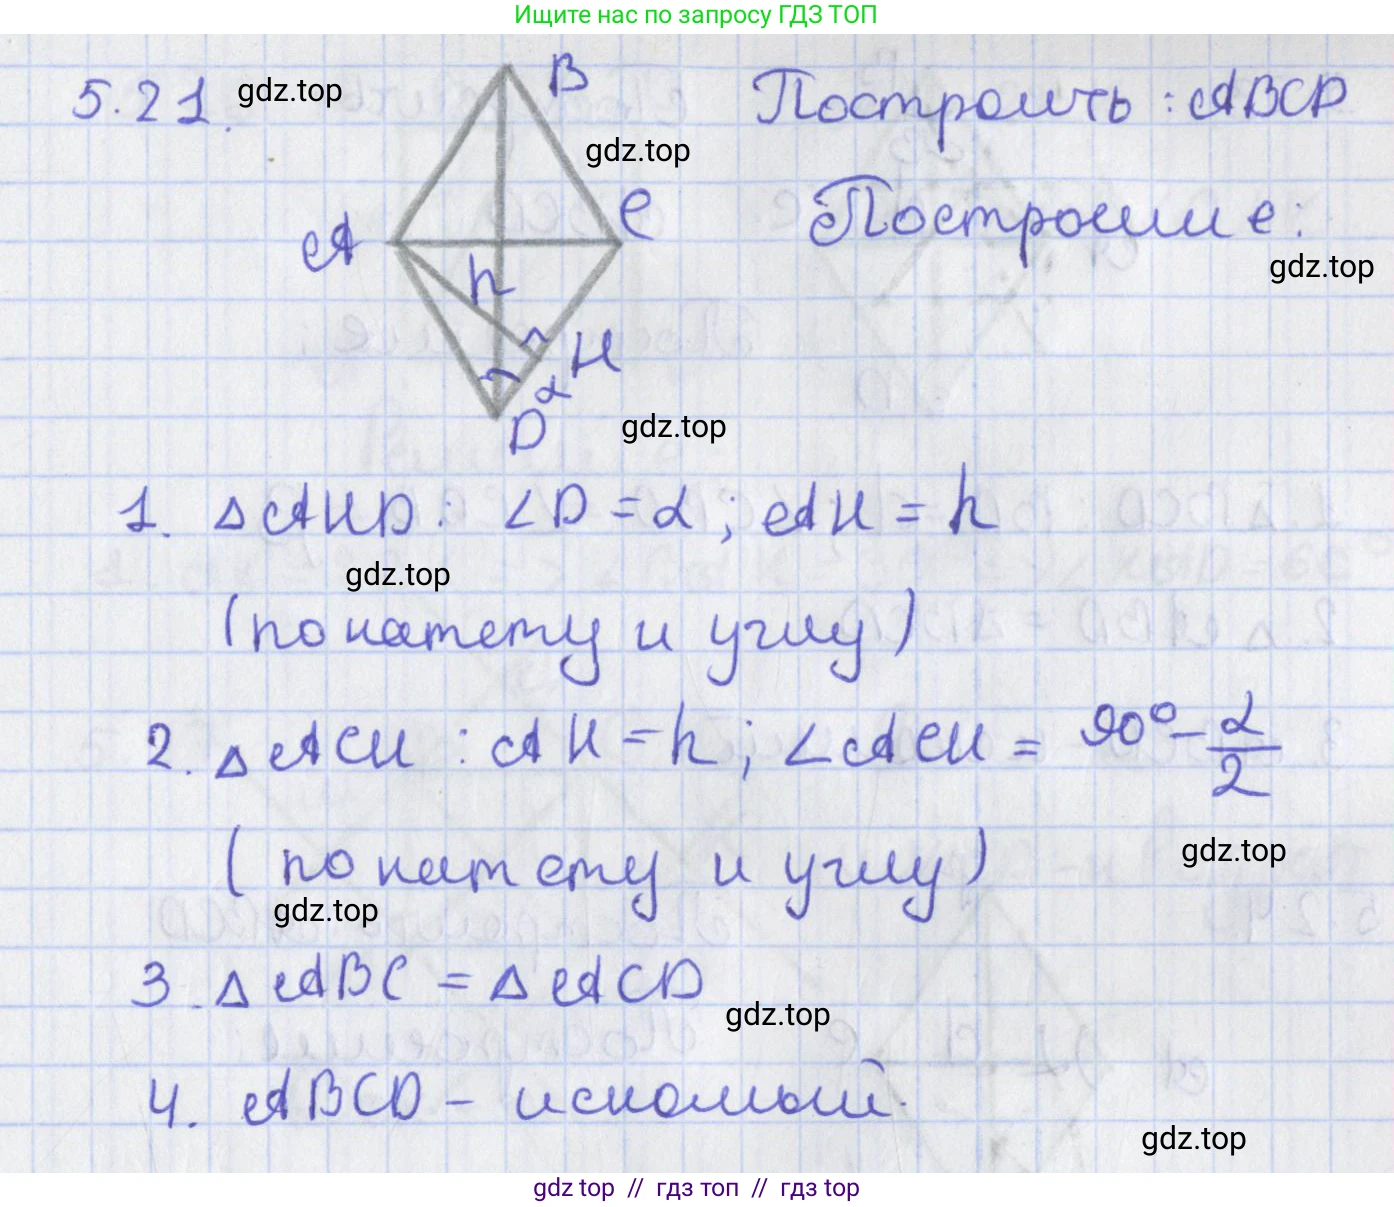 Ищите нас по запросу ГДЗ ТОП
5.21.
gdz.top
B
Построить: ABCD
gdz.top
A
C
Построение:
gdz.top
h
H
α
D
gdz.top
1. △AHD: ∠D = α; AH = h
gdz.top
(по катету и углу)
2. △ACH: AH = h; ∠ACH = 90° - α/2
gdz.top
(по катету и углу)
gdz.top
3. △ABC = △ACD
gdz.top
4. ABCD - искомый.
gdz.top
gdz top // гдз топ // гдз top